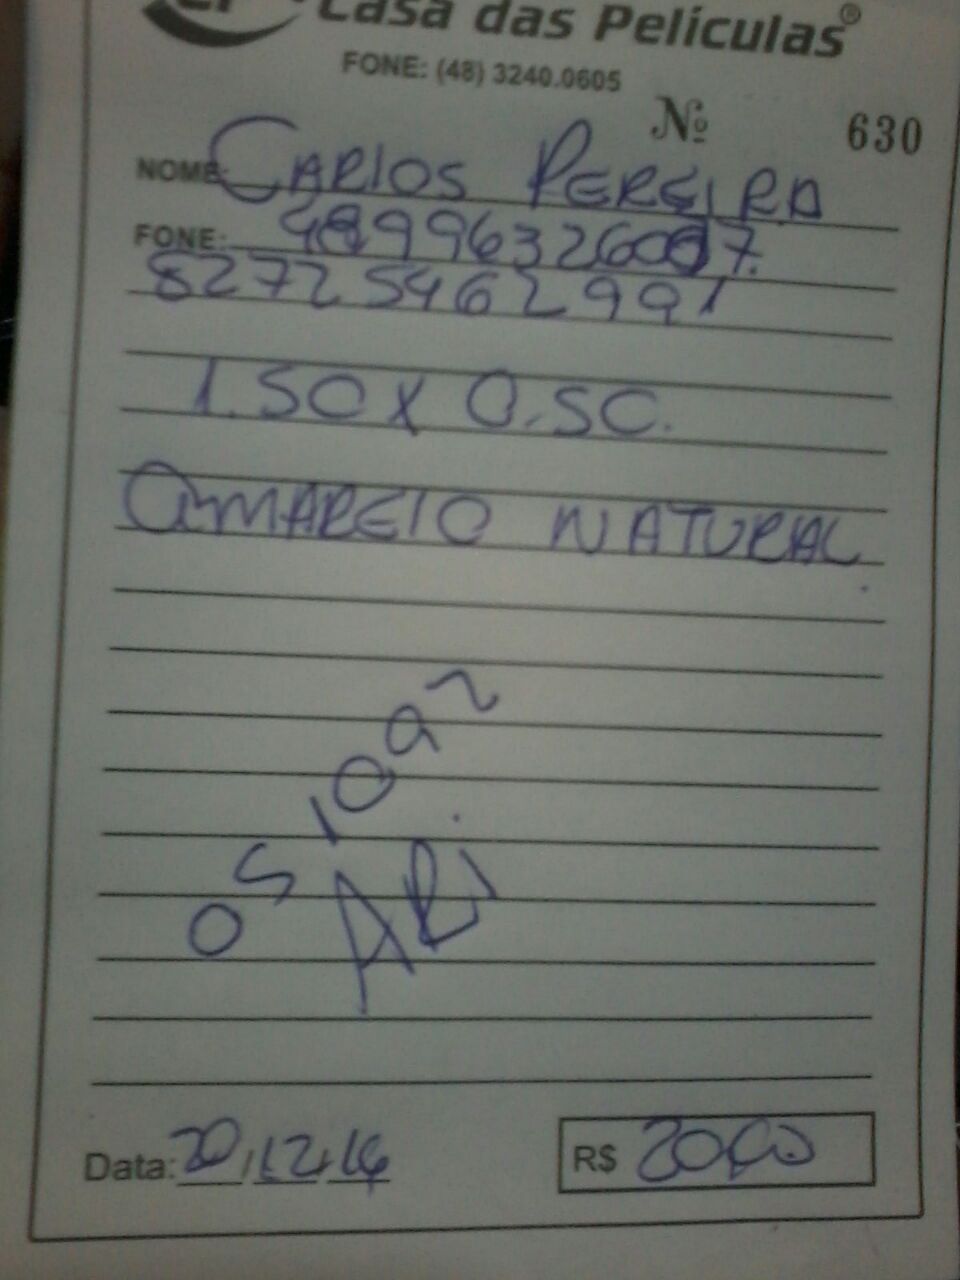 Casa das Películas®
FONE: (48) 3240.0605
Nº 630
NOME: CARLOS PEREIRA
FONE: 48999632600 7.
82772 5462991
1.50 X 0.50.
AMARELO NATURAL
051092
ARI
Data: 20/12/16 R$ 2000